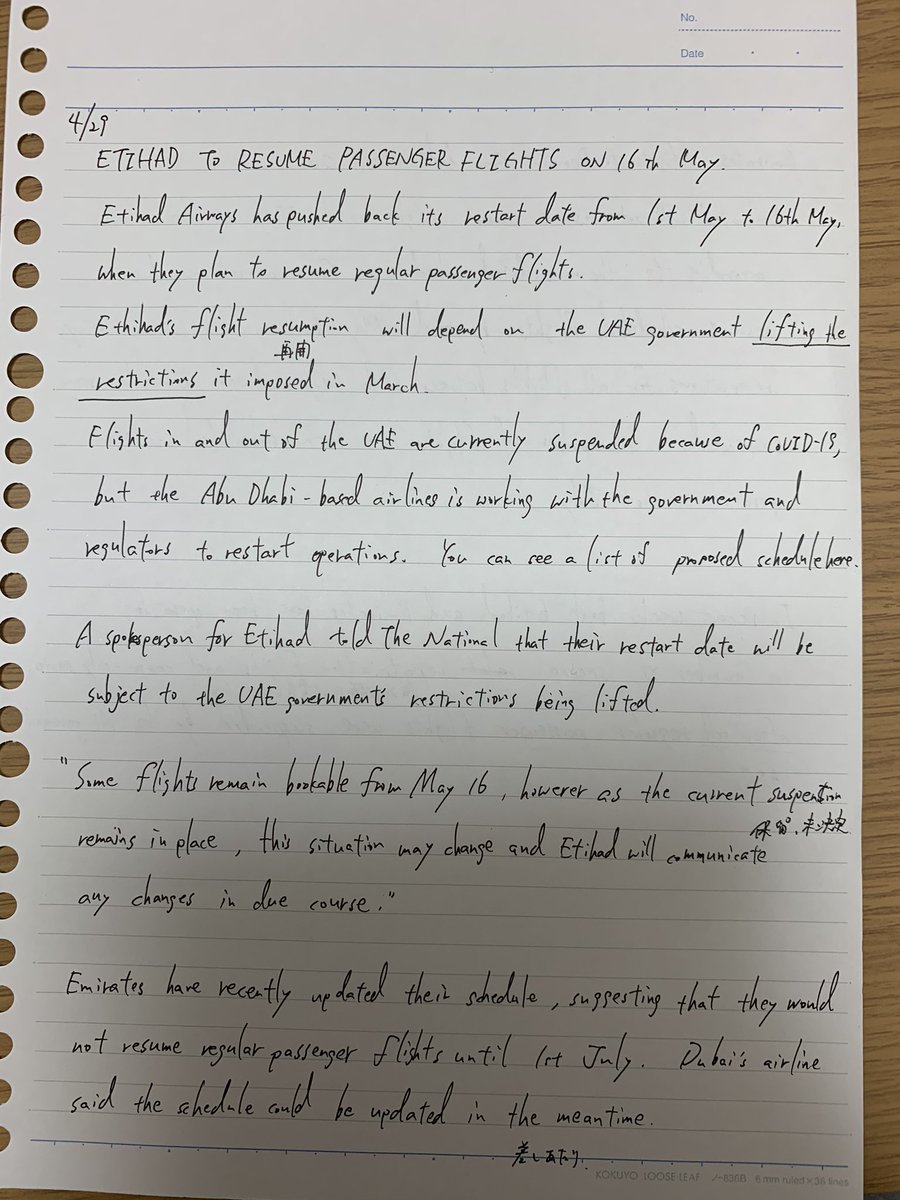 No.
Date
4/29
ETIHAD TO RESUME PASSENGER FLIGHTS ON 16th May.
Etihad Airways has pushed back its restart date from 1st May to 16th May,
when they plan to resume regular passenger flights.
Ethihad's flight resumption will depend on the UAE government lifting the
再開
restrictions it imposed in March.
Flights in and out of the UAE are currently suspended because of COVID-19,
but the Abu Dhabi-based airlines is working with the government and
regulators to restart operations. You can see a list of proposed schedule here.
A spokesperson for Etihad told The National that their restart date will be
subject to the UAE government's restrictions being lifted.
"Some flights remain bookable from May 16, however as the current suspention
保留、未決定
remains in place, this situation may change and Etihad will communicate
any changes in due course."
Emirates have recently updated their schedule, suggesting that they would
not resume regular passenger flights until 1st July. Dubai's airline
said the schedule could be updated in the meantime.
差しあたり.
KOKUYO LOOSE-LEAF ノ-836B 6 mm ruled×36 lines